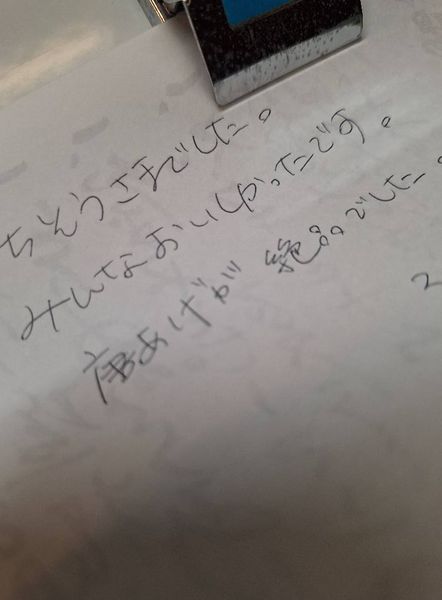 ちそうさまでした。
みんなおいしかったです。
唐あげが絶品でした。
2